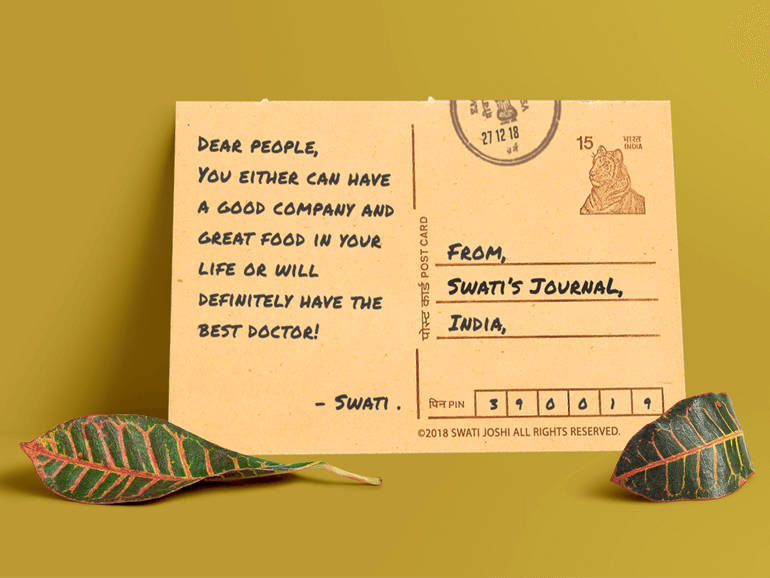 DEAR PEOPLE,
YOU EITHER CAN HAVE
A GOOD COMPANY AND
GREAT FOOD IN YOUR
LIFE OR WILL
DEFINITELY HAVE THE
BEST DOCTOR!
- SWATI .
27 12 18
15 भारत
INDIA
पोस्ट कार्ड POST CARD
FROM,
SWATI'S JOURNAL,
INDIA,
पिन PIN 3 9 0 0 1 9
©2018 SWATI JOSHI ALL RIGHTS RESERVED.